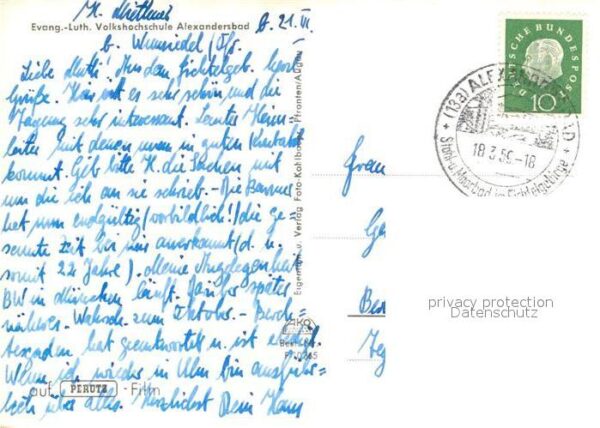 Evang.-Luth. Volkshochschule Alexandersbad
b. Wunsiedel / Ofr.
Liebe Mutti! Aus dem Fichtelgeb. herzl.
Grüße. Hier ist es sehr schön und die
Tagung sehr interessant. Lauter
Leute mit denen man in guten Kontakt
kommt. Gib bitte H. die Sachen mit
um die ich an sie schrieb. - Die
hat nun endgültig (vorbildlich!) die ge-
samte Zeit bei uns anerkannt (d. h.
somit 22 Jahre). Meine Angelegenheit
BW in München läuft. Darüber später
näheres. - Berch-
tesgaden hat geantwortet u. ist
Wenn ich wieder in Ulm bin ausführ-
lich über alles. Herzlichst Dein Hans
auf PERUTZ - Film
Eigentum u. Verlag Foto-Kohlbauer Pfronten/Allgäu
AKO
DEUTSCHE BUNDESPOST
10
(13a) ALEXANDERSBAD
18.3.59-18
Stahl-u. Moorbad im Fichtelgebirge
Frau
privacy protection
Datenschutz